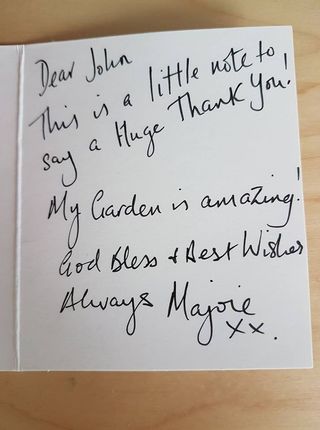 Dear John
This is a little note to
say a Huge Thank You!
My Garden is amazing!
God Bless & Best Wishes
Always Majorie
xx.